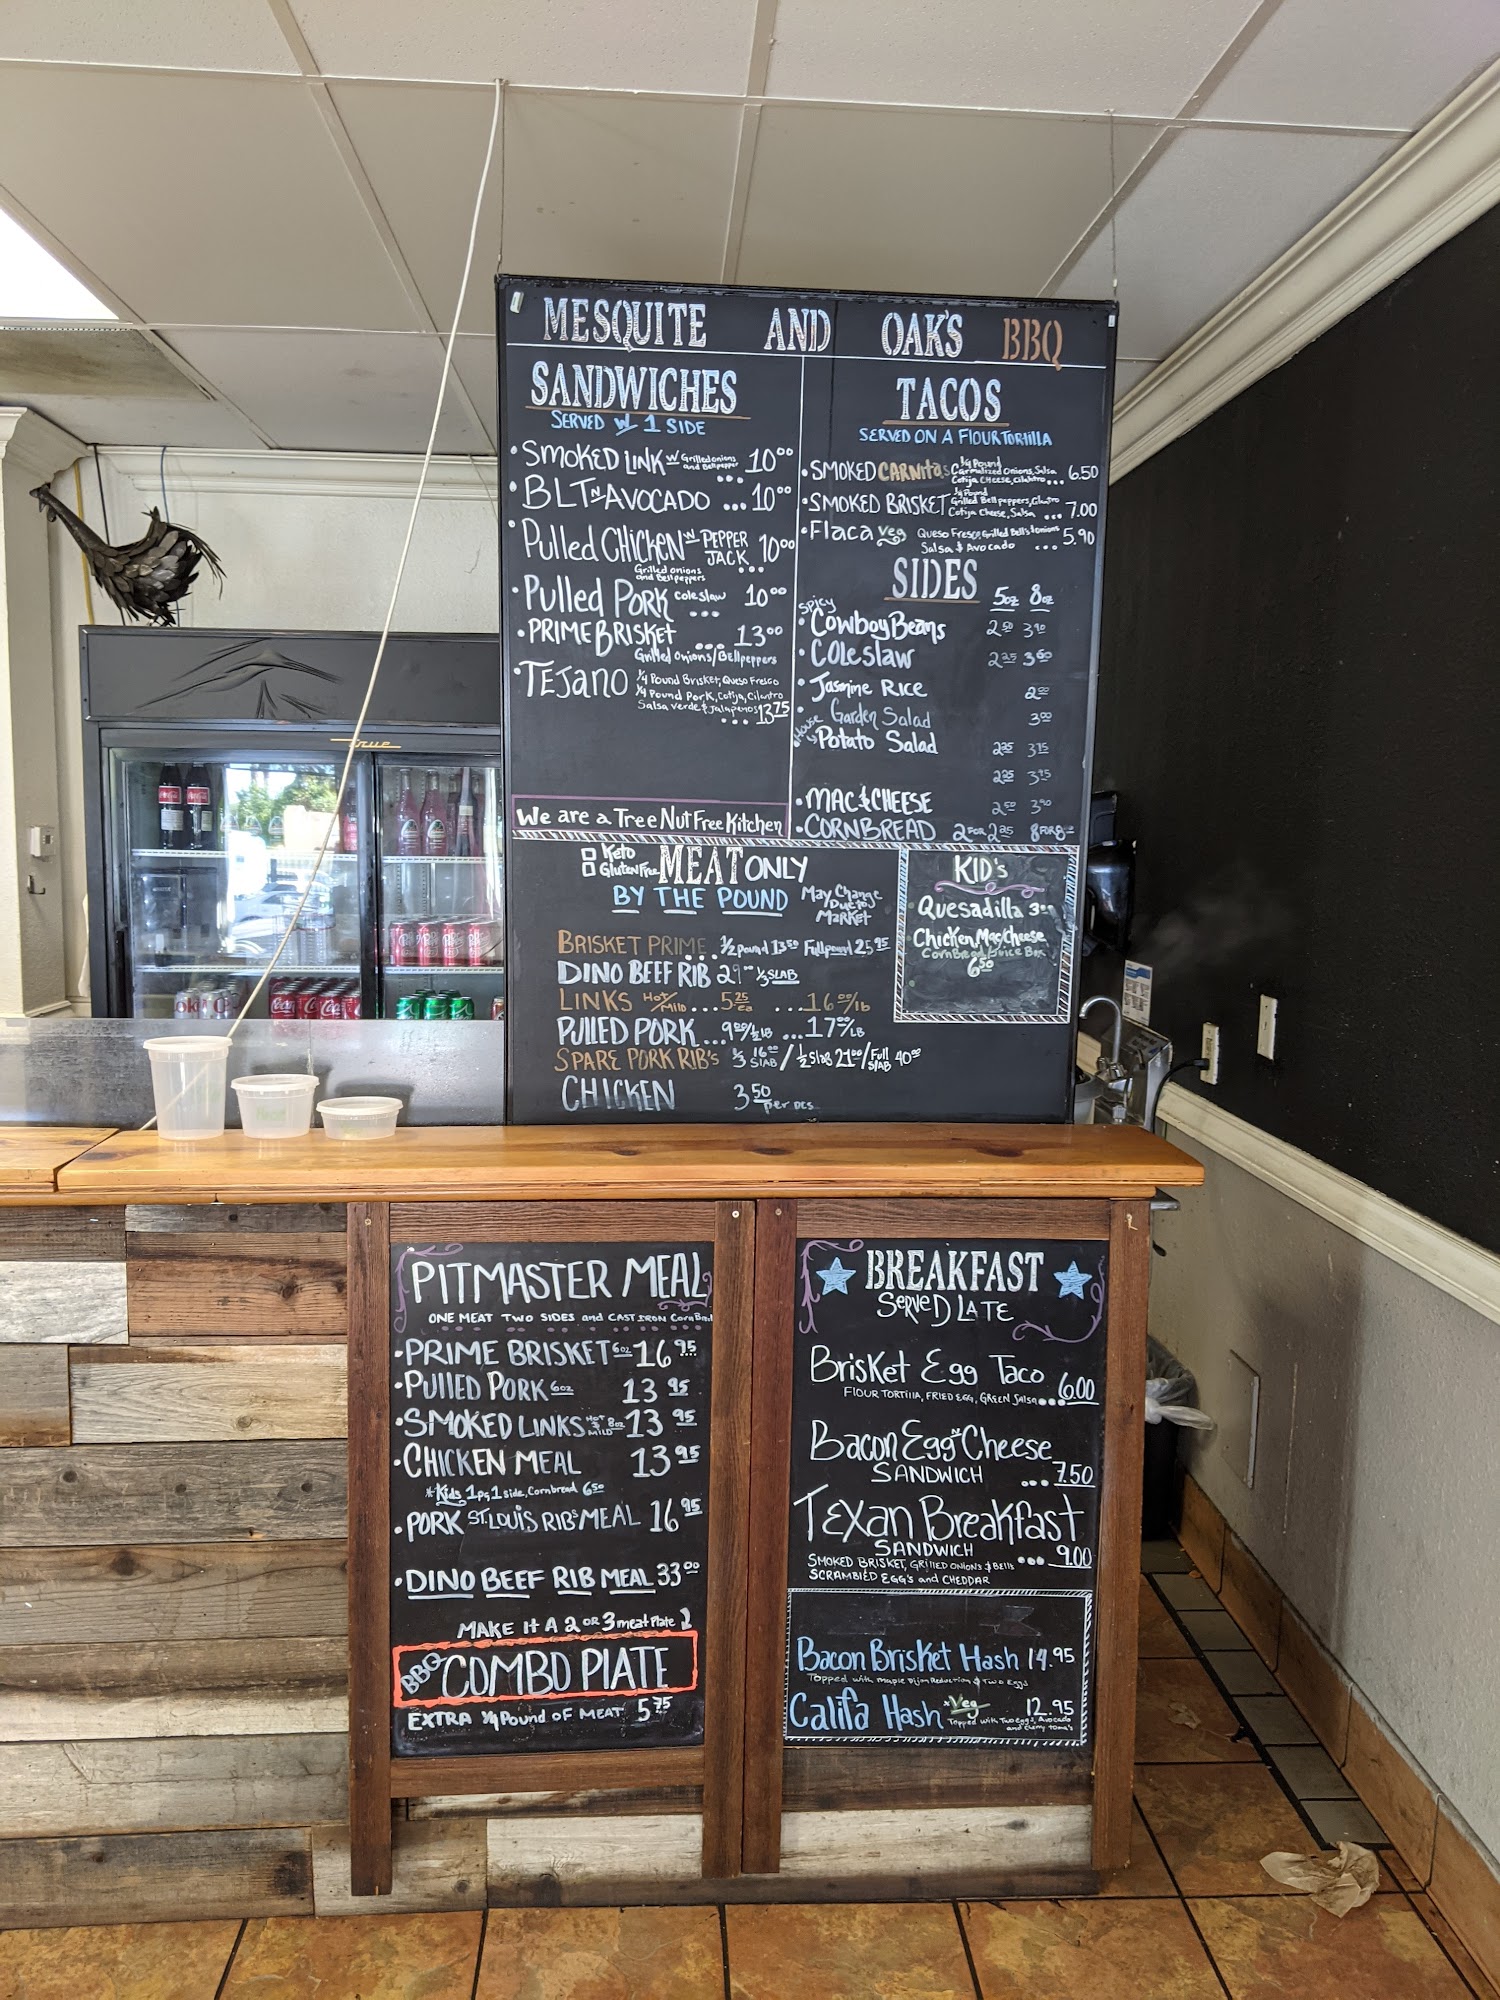 MESQUITE AND OAK'S BBQ
SANDWICHES
SERVED W 1 SIDE
• SMOKED LINK W Grilled onions and Bellpepper 10⁰⁰
• BLT N AVOCADO ... 10⁰⁰
• Pulled CHICKEN W PEPPER JACK ... 10⁰⁰
Grilled onions and Bellpeppers
• Pulled PORK coleslaw ... 10⁰⁰
• PRIME BRISKET ... 13⁰⁰
Grilled Onions/Bellpeppers
• TEJANO ¼ Pound Brisket, Queso Fresco
¼ Pound Pork, Cotija, Cilantro
Salsa verde & Jalapenos
... 13⁷⁵
We are a Tree Nut Free Kitchen
TACOS
SERVED ON A FLOUR TORTILLA
• SMOKED CARNITAS ¼ Pound Carmalized Onions, Salsa Cotija Cheese, cilantro ... 6.50
• SMOKED BRISKET ¼ Pound Grilled Bellpeppers, Cilantro Cotija Cheese, Salsa ... 7.00
• Flaca veg Queso Fresco, Grilled Bell's & onions
Salsa & Avocado ... 5.90
SIDES 5oz 8oz
Spicy
• Cowboy Beans 2⁵⁰ 3⁹⁰
• Coleslaw 2²⁵ 3⁶⁰
• Jasmine Rice 2⁰⁰
• Garden Salad 3⁰⁰
House
• Potato Salad 2²⁵ 3⁷⁵
2²⁵ 3⁹⁵
• MAC & CHEESE 2⁵⁰ 3⁹⁰
• CORNBREAD 2 FOR 2²⁵ 8 FOR 8
Keto
Gluten Free
MEAT ONLY
BY THE POUND
May Change Due to MARKET
BRISKET PRIME ... ½ pound 13⁵⁰ Full pound 25⁹⁵
DINO BEEF RIB 29⁰⁰ ⅓ SLAB
LINKS Hot/Mild ... 5²⁵ ea ... 16⁰⁰/lb
PULLED PORK ... 9⁰⁰/½ LB ... 17⁰⁰/LB
SPARE PORK RIB'S ⅓ SLAB 16⁰⁰ / ½ Slab 21⁰⁰ / Full SLAB 40⁰⁰
CHICKEN 3⁵⁰ per pcs
KID'S
Quesadilla 3⁰⁰
Chicken, Mac/Cheese
CornBread/Juice Box
6⁵⁰
True
PITMASTER MEAL
ONE MEAT TWO SIDES and CAST IRON CornBread
• PRIME BRISKET 6oz 16⁹⁵
• PULLED PORK 6oz 13⁹⁵
• SMOKED LINKS HOT & MILD 8oz 13⁹⁵
• CHICKEN MEAL 13⁹⁵
*Kids 1pc, 1 side, Cornbread 6⁵⁰
• PORK ST. LOUIS RIB'S MEAL 16⁹⁵
• DINO BEEF RIB MEAL 33⁰⁰
MAKE It A 2 OR 3 meat Plate
BBQ COMBO PLATE
EXTRA ¼ Pound OF MEAT 5⁷⁵
BREAKFAST
SERVED LATE
Brisket Egg Taco
FLOUR TORTILLA, FRIED EGG, GREEN Salsa ... 6.00
Bacon Egg N Cheese
SANDWICH ... 7.50
TEXAN Breakfast
SANDWICH
SMOKED BRISKET, GRILLED ONIONS & BELLS ... 9.00
SCRAMBLED EGG'S and CHEDDAR
Bacon Brisket Hash 14.95
Topped with Maple Dijon Reduction & Two Eggs
Califa Hash *Veg 12.95
Topped with Two eggs, Avocado and cherry toma's